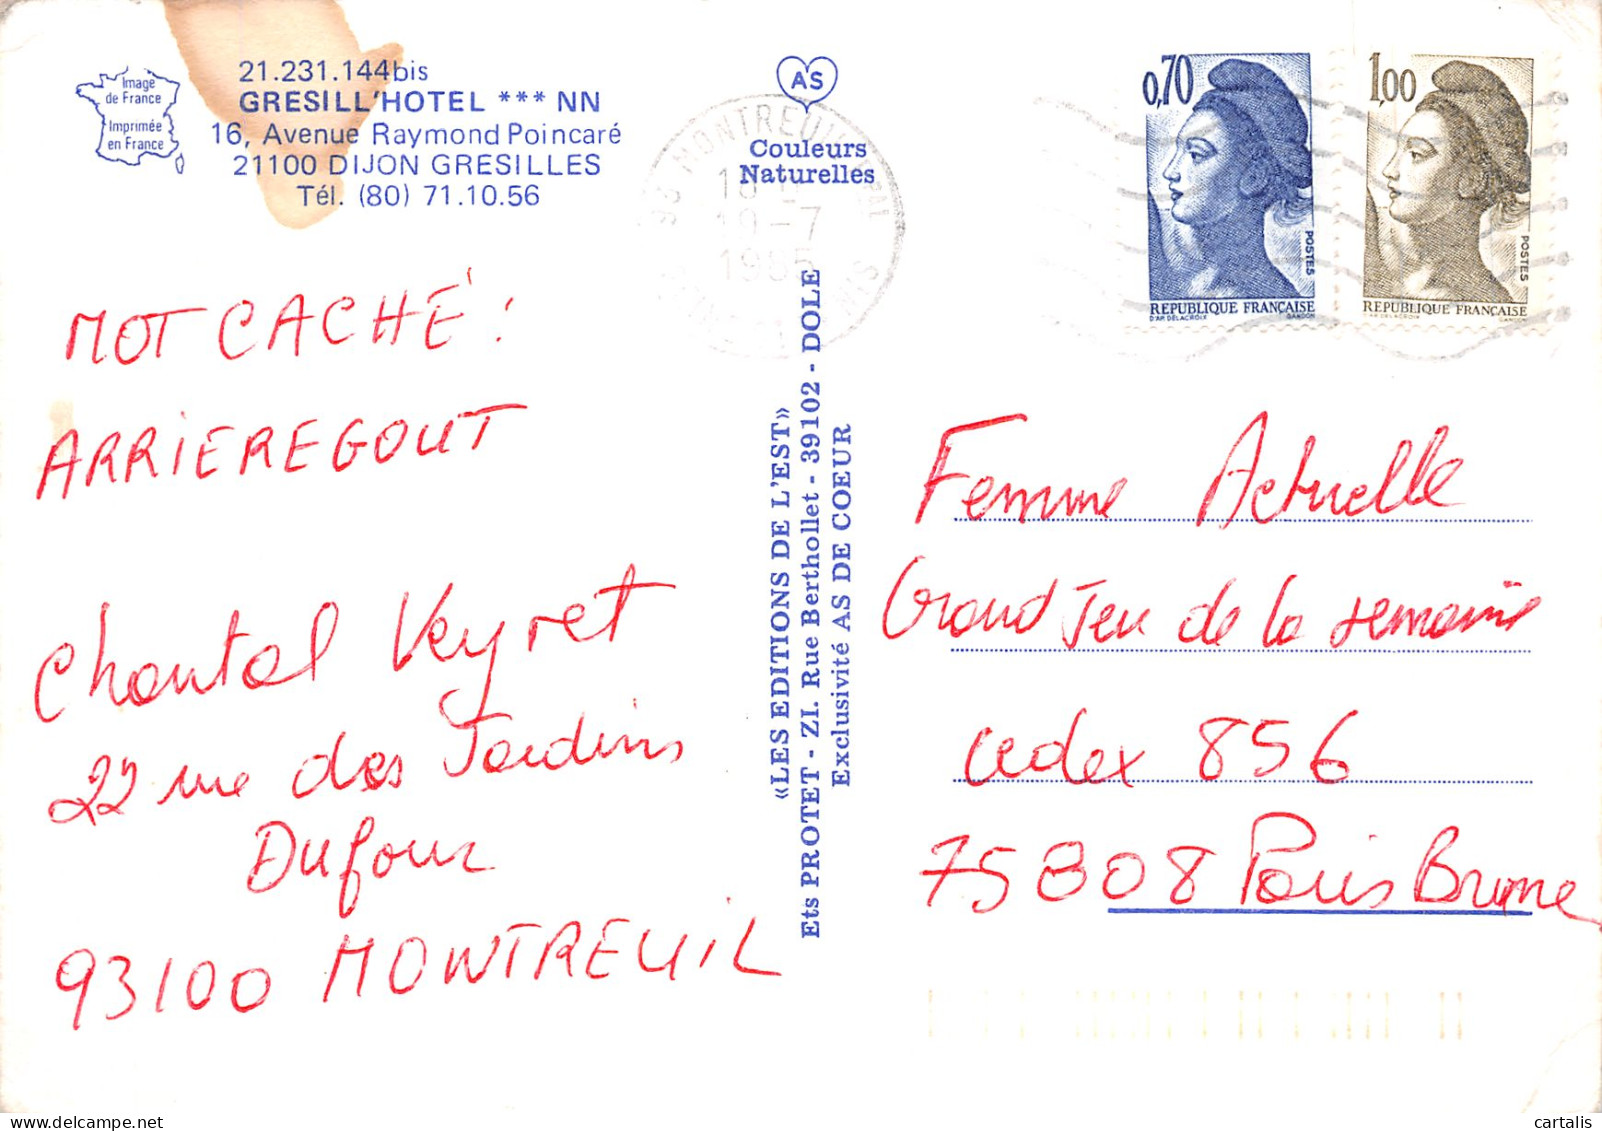 Image
de France
Imprimée
en France
21.231.144bis
GRESILL'HOTEL *** NN
16, Avenue Raymond Poincaré
21100 DIJON GRESILLES
Tél. (80) 71.10.56
MOT CACHÉ :
ARRIEREGOUT
Chantal Veyret
22 rue des Jardins
Dufour
93100 MONTREUIL
AS
Couleurs
Naturelles
93 MONTREUIL
18
10-7
1985
«LES EDITIONS DE L'EST»
Ets PROTET - ZI. Rue Berthollet - 39102 - DOLE
Exclusivité AS DE COEUR
0,70
POSTES
REPUBLIQUE FRANÇAISE
D'AP. DELACROIX GANDON
1,00
POSTES
REPUBLIQUE FRANÇAISE
D'AP. DELACROIX GANDON
Femme Actuelle
Grand Jeu de la semaine
cedex 856
75808 Paris Brune
cartalis